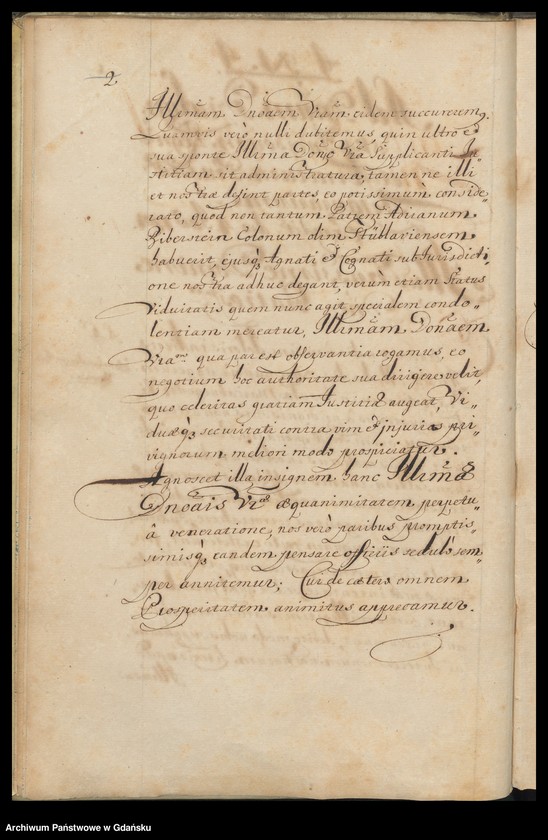 2
Illrmam Dnoaem Vram eidem succurerem,
Quamvis verò nulli dubitemus, quin ultro &
sua sponte Illrma Donõ Vra Supplicanti Ju-
stitiam sit administratura, tamen ne illi
et nostræ desint partes, eo potissimum, conside-
rato, quod non tantum Patrem Adrianum
Biberstein Colonum olim Stüblaviensem
habuerit, ejusq; Agnati & Cognati sub Jurisdicti-
one nostra adhuc degant, verum etiam Status
Viduitatis quem nunc agit specialem condo-
lentiam mereatur, Illrmam Donaem
Vram qua par est observantia rogamus, eo
negotium hoc authoritate sua dirigere velit,
quo celeritas gratiam Justitiæ augeat, Vi-
duæq; securitati contra vim & injurias pri-
vignorum meliori modo prospiciatur.
Agnoscet illa insignem hanc Illrmæ
Dnoais Vræ æquanimitatem perpetu-
â veneratione, nos verò paribus promptis-
simisq; eandem pensare officiis sedulò sem-
per annitemur; Cui de cætero omnem
Prosperitatem animitus apprecamur.
Archiwum Państwowe w Gdańsku